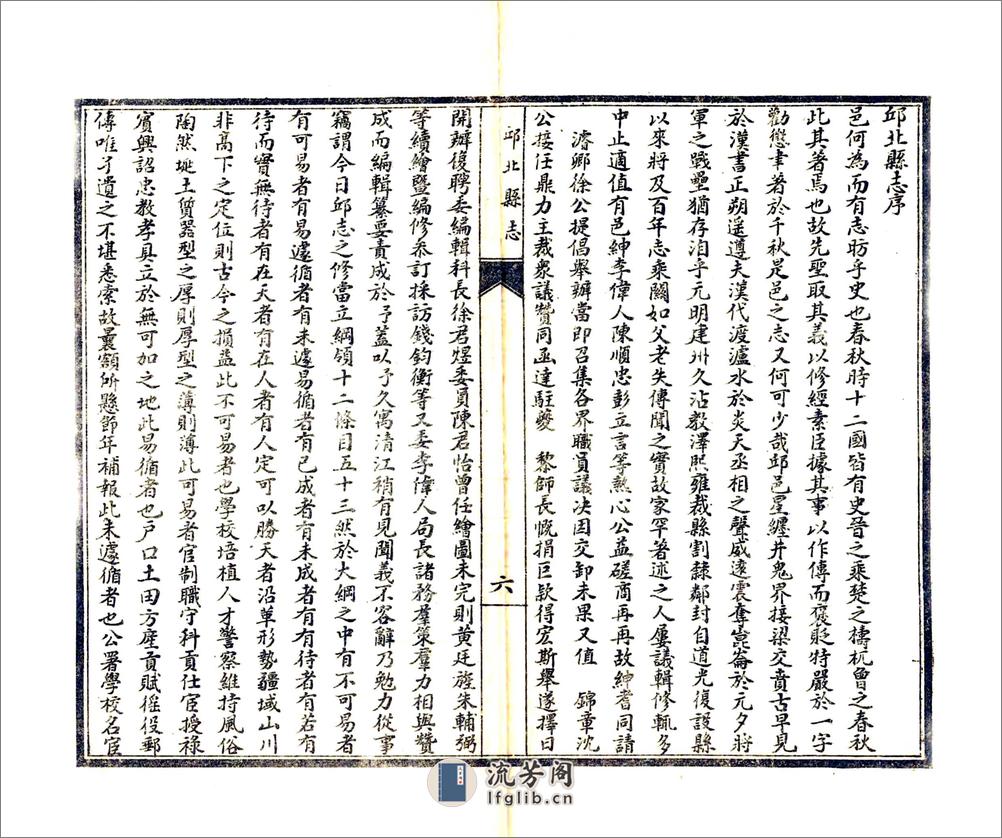 邱北縣志序
邑何為而有志昉乎史也春秋時十二國皆有史晉之乘楚之檮杌魯之春秋
此其著焉也故先聖取其義以修經素臣據其事以作傳而褒貶特嚴於一字
勸懲聿著於千秋是邑之志又何可少哉邱邑星纏井鬼界接梁交賁古早見
於漢書正朔遥遵夫漢代渡瀘水於炎天丞相之聲威遠震奪崑崙於元夕將
軍之戰壘猶存洎乎元明建州久沾教澤熙雍裁縣割隸鄰封自道光復設縣
以來將及百年志乘闕如父老失傳聞之實故家罕著述之人屢議輯修輒多
中止適值有邑紳李偉人陳順忠彭立言等熱心公益磋商再再故紳耆同請
濬卿徐公提倡舉辦當即召集各界職員議决因交卸未果又值 錦章沈
公接任鼎力主裁衆議贊同函達駐夔 黎師長慨捐巨款得宏斯舉遂擇日
邱北縣志
六
開辦復聘委編輯科長徐君煜委員陳君怡曾任繪圖未完則黄廷旌朱輔弼
等續繪暨編修叅訂採訪錢鈞衡等又委李偉人局長諸務羣策羣力相與贊
成而編輯纂要責成於予蓋以予久寓清江稍有見聞義不容辭乃勉力從事
竊謂今日邱志之修當立綱領十二條目五十三然於大綱之中有不可易者
有可易者有易遽循者有未遽易循者有已成者有未成者有有待者有若有
待而實無待者有在天者有在人者有人定可以勝天者沿革形勢疆域山川
非高下之定位則古今之損益此不可易者也學校培植人才警察維持風俗
陶然埏土質器型之厚則厚型之薄則薄此可易者官制職守科貢仕宦授祿
賓興詔忠教孝具立於無可加之地此易循者也户口土田方産貢賦徭役郵
傳唯孑遺之不堪悉索故曩額所縣節年補報此未遽循者也公署學校名宦
流芳阁
lfglib.cn